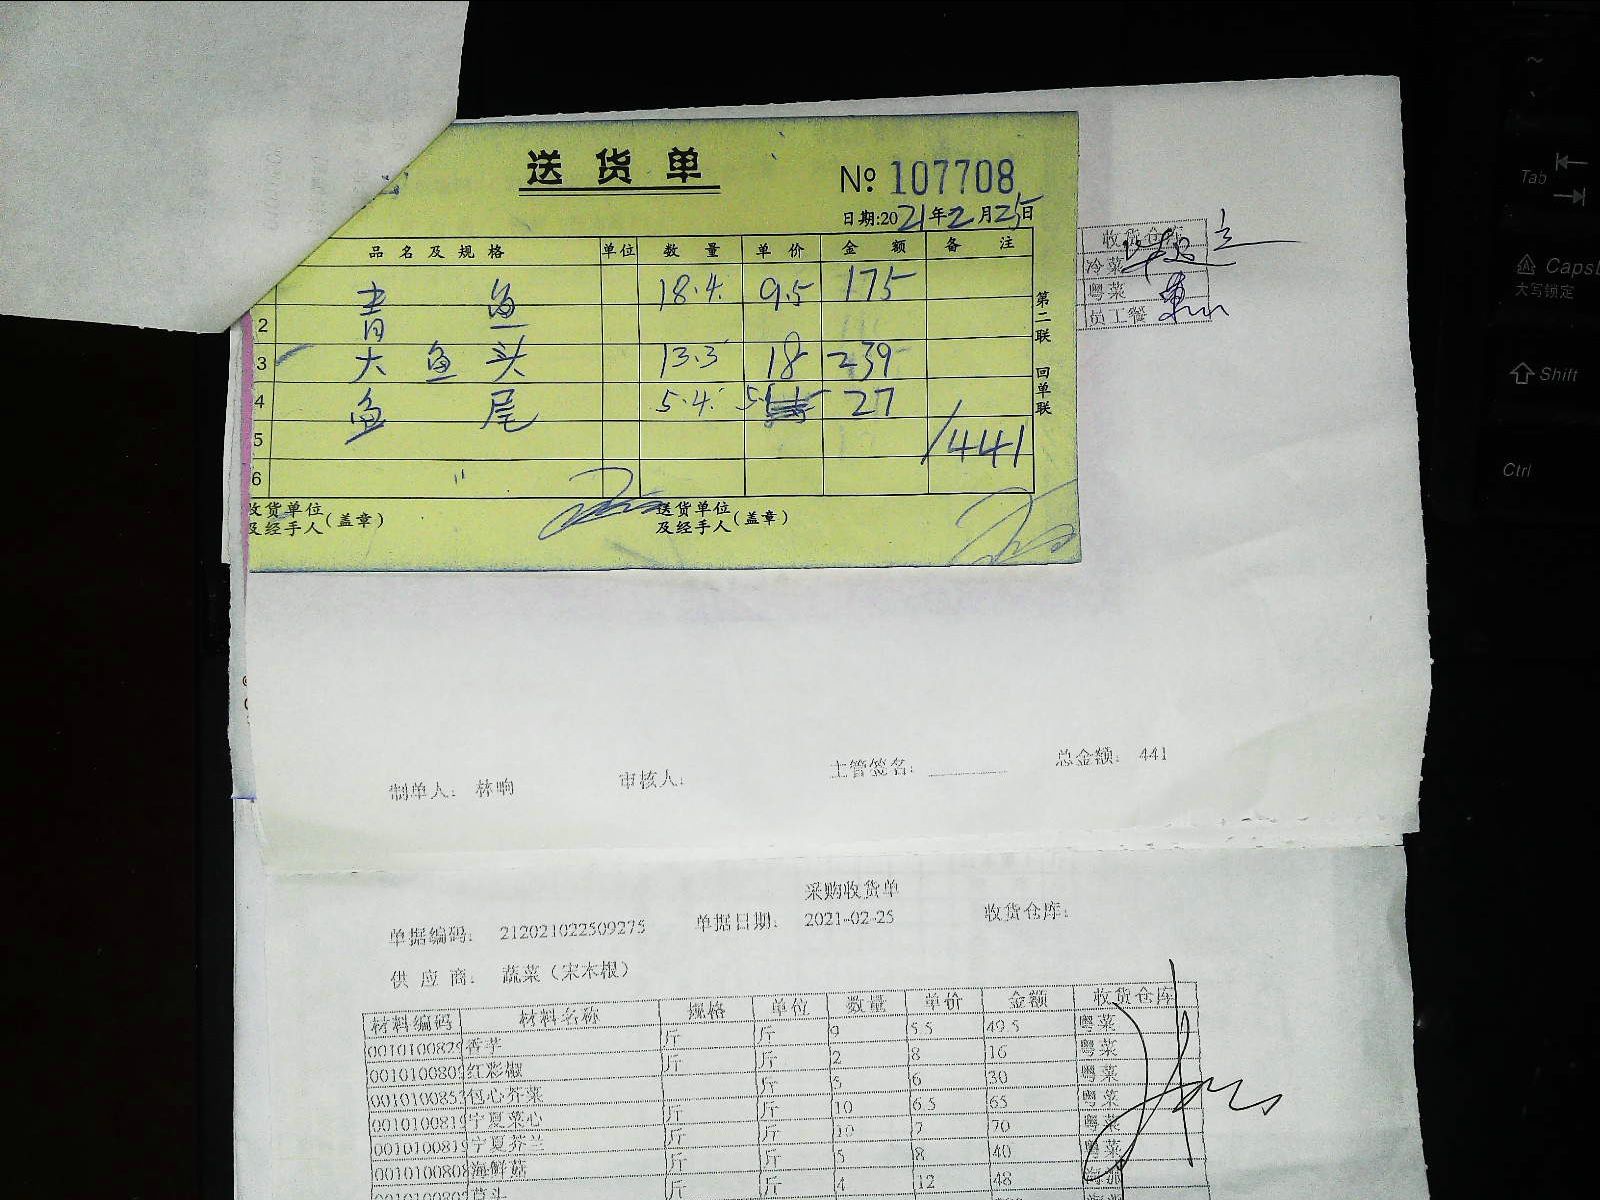 送货单
№ 107708
日期:2021年2月25日
品名及规格 单位 数量 单价 金额 备注
青鱼 18.4 9.5 175
2
3 大鱼头 13.3 18 239
4 鱼尾 5.4 5 27
5 441
6
收货单位及经手人(盖章) 送货单位及经手人(盖章)
第二联 回单联
收货仓库
冷菜
粤菜
员工餐
制单人: 林响 审核人: 主管签名: 总金额: 441
采购收货单
单据编码: 212021022509275 单据日期: 2021-02-25 收货仓库:
供应商: 蔬菜(宋木根)
材料编码 材料名称 规格 单位 数量 单价 金额 收货仓库
001010082 香芋 斤 斤 9 5.5 49.5 粤菜
001010080 红彩椒 斤 斤 2 8 16 粤菜
001010085 包心芥菜 斤 5 6 30 粤菜
001010081 宁夏菜心 斤 斤 10 6.5 65 粤菜
001010081 宁夏芥兰 斤 斤 10 7 70 粤菜
001010080 海鲜菇 斤 斤 5 8 40 粤菜
001010080 斤 斤 4 12 48
Tab
Caps
大写锁定
Shift
Ctrl